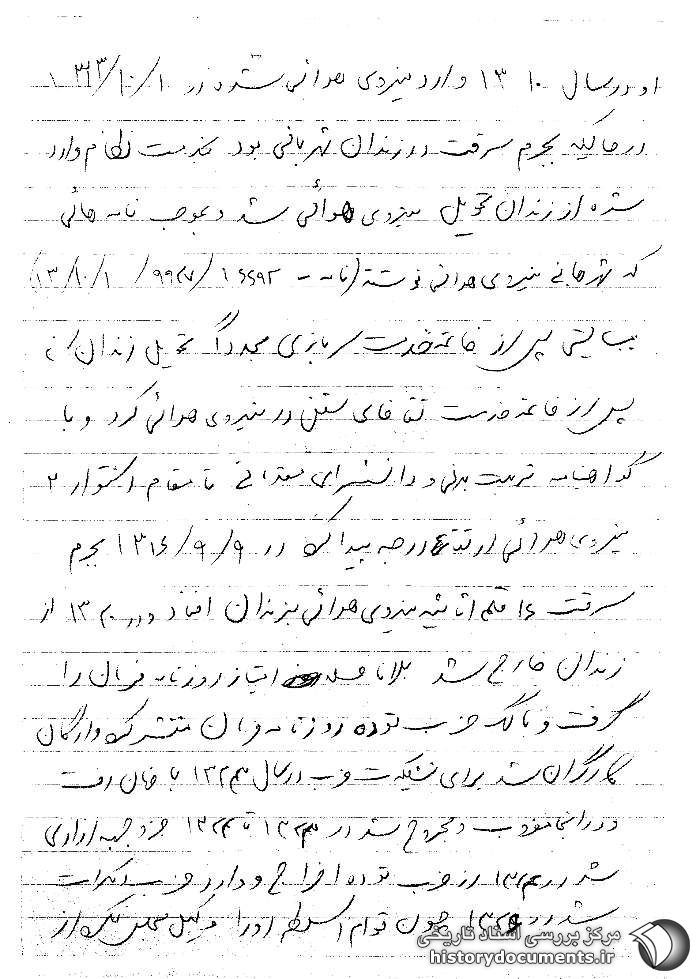 او در سال ۱۳۱۰ وارد نیروی هوائی شده در ۱/۱۰/
در حالیکه بجرم سرقت در زندان شهربانی بود بخدمت نظام وارد
شده از زندان تحویل نیروی هوائی شد و بموجب نامه هائی
که شهربانی بنیروی هوائی نوشته (نامه –
بایستی پس از خاتمه خدمت سربازی مجدداً تحویل زندان
پس از خاتمه خدمت تقاضای در نیروی هوائی کرد و با
گواهنامه تربیت بدنی و دانشسرای مقدماتی تا مقام استوار ۲
نیروی هوائی ارتقاء درجه پیدا کرد در ۹/۹/۱۳۱۶ بجرم
سرقت ۱۶ قلم اثاثیه نیروی هوائی بزندان افتاد و در ۱۳۲۰ از
زندان خارج شد بلافاصله امتیاز روزنامه را
گرفت و با کمک حزب توده روزنامه منتشر کرد و ارگان
کارگران شد برای تشکیلات حزب در سال رفت
و در آنجا مضروب و مجروح شد در تا جزو جبهه آزادی
شد در از حزب توده اخراج و وارد حزب دمکرات
شد در چون قوام السلطنه او را وکیل مجلس از
مرکز بررسی اسناد تاریخی
historydocuments.ir